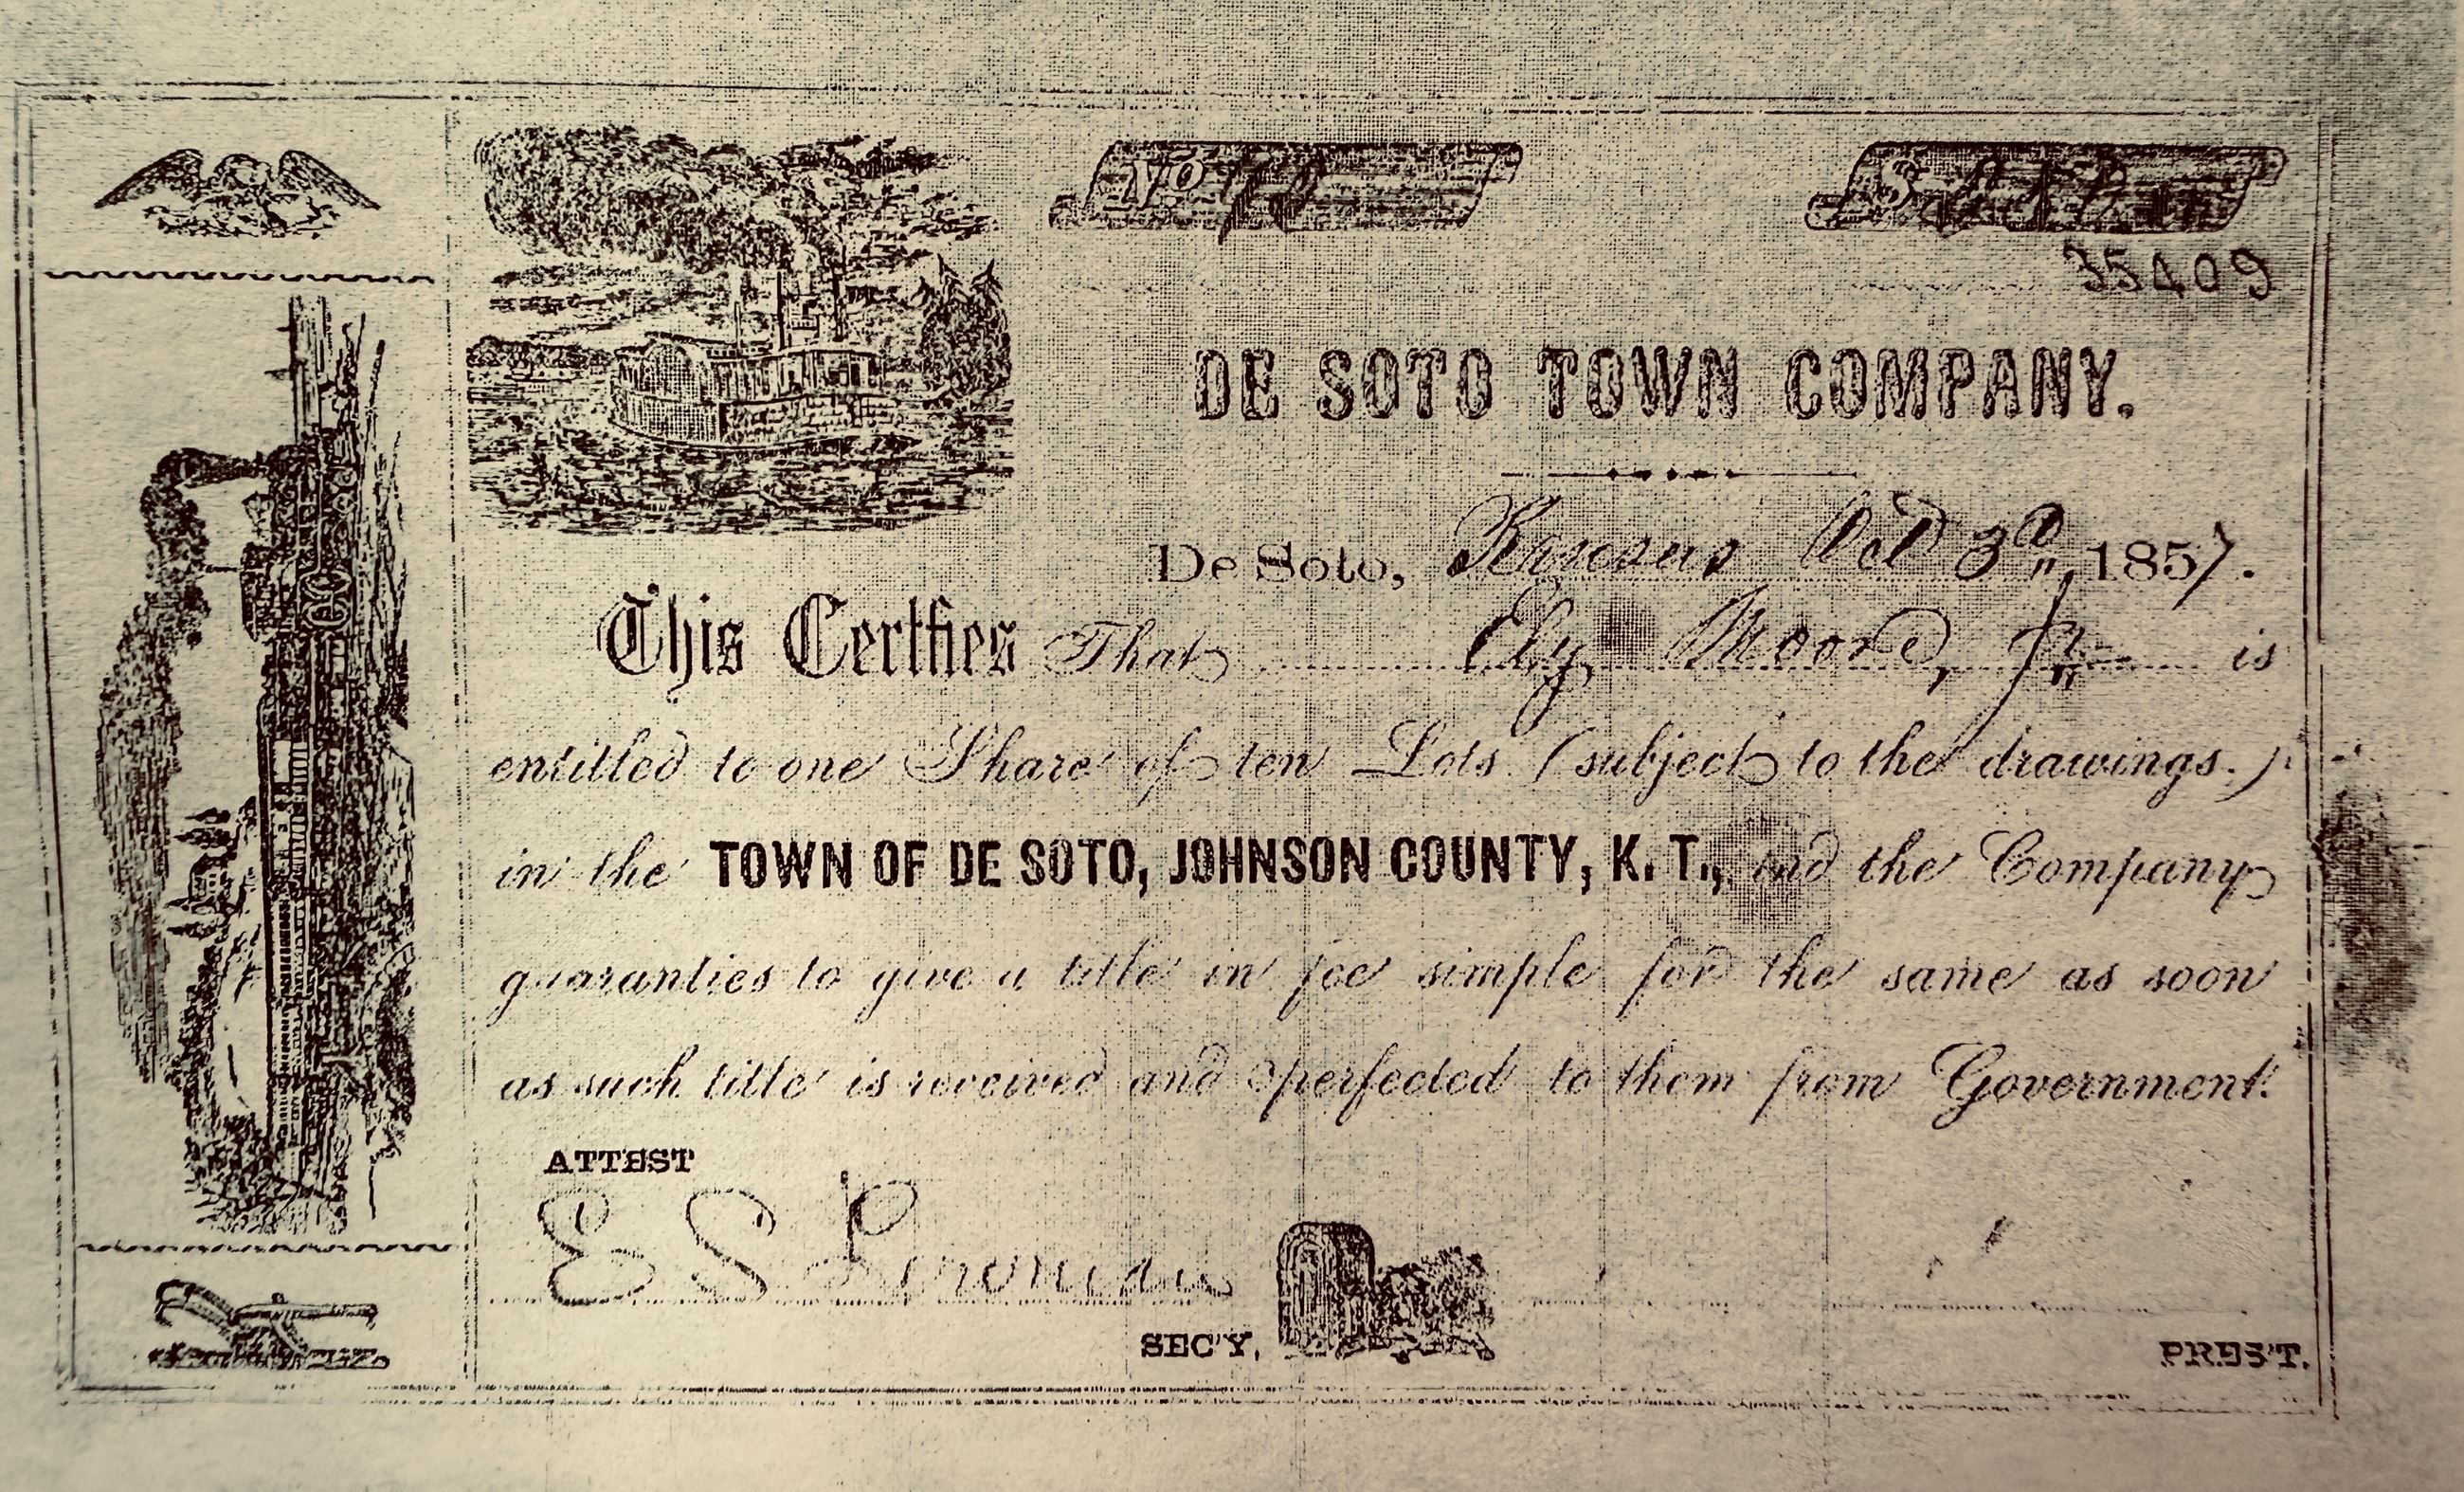 No
35409
DE SOTO TOWN COMPANY.
De Soto, Kansas Oct 3d, 1857.
This Certfies That Ely Moore, Jr is
entitled to one Share of ten Lots (subject to the drawings.)
in the TOWN OF DE SOTO, JOHNSON COUNTY, K. T., and the Company
guaranties to give a title in fee simple for the same as soon
as such title is received and perfected to them from Government.
ATTEST
E S
SEC'Y,
PRES'T.